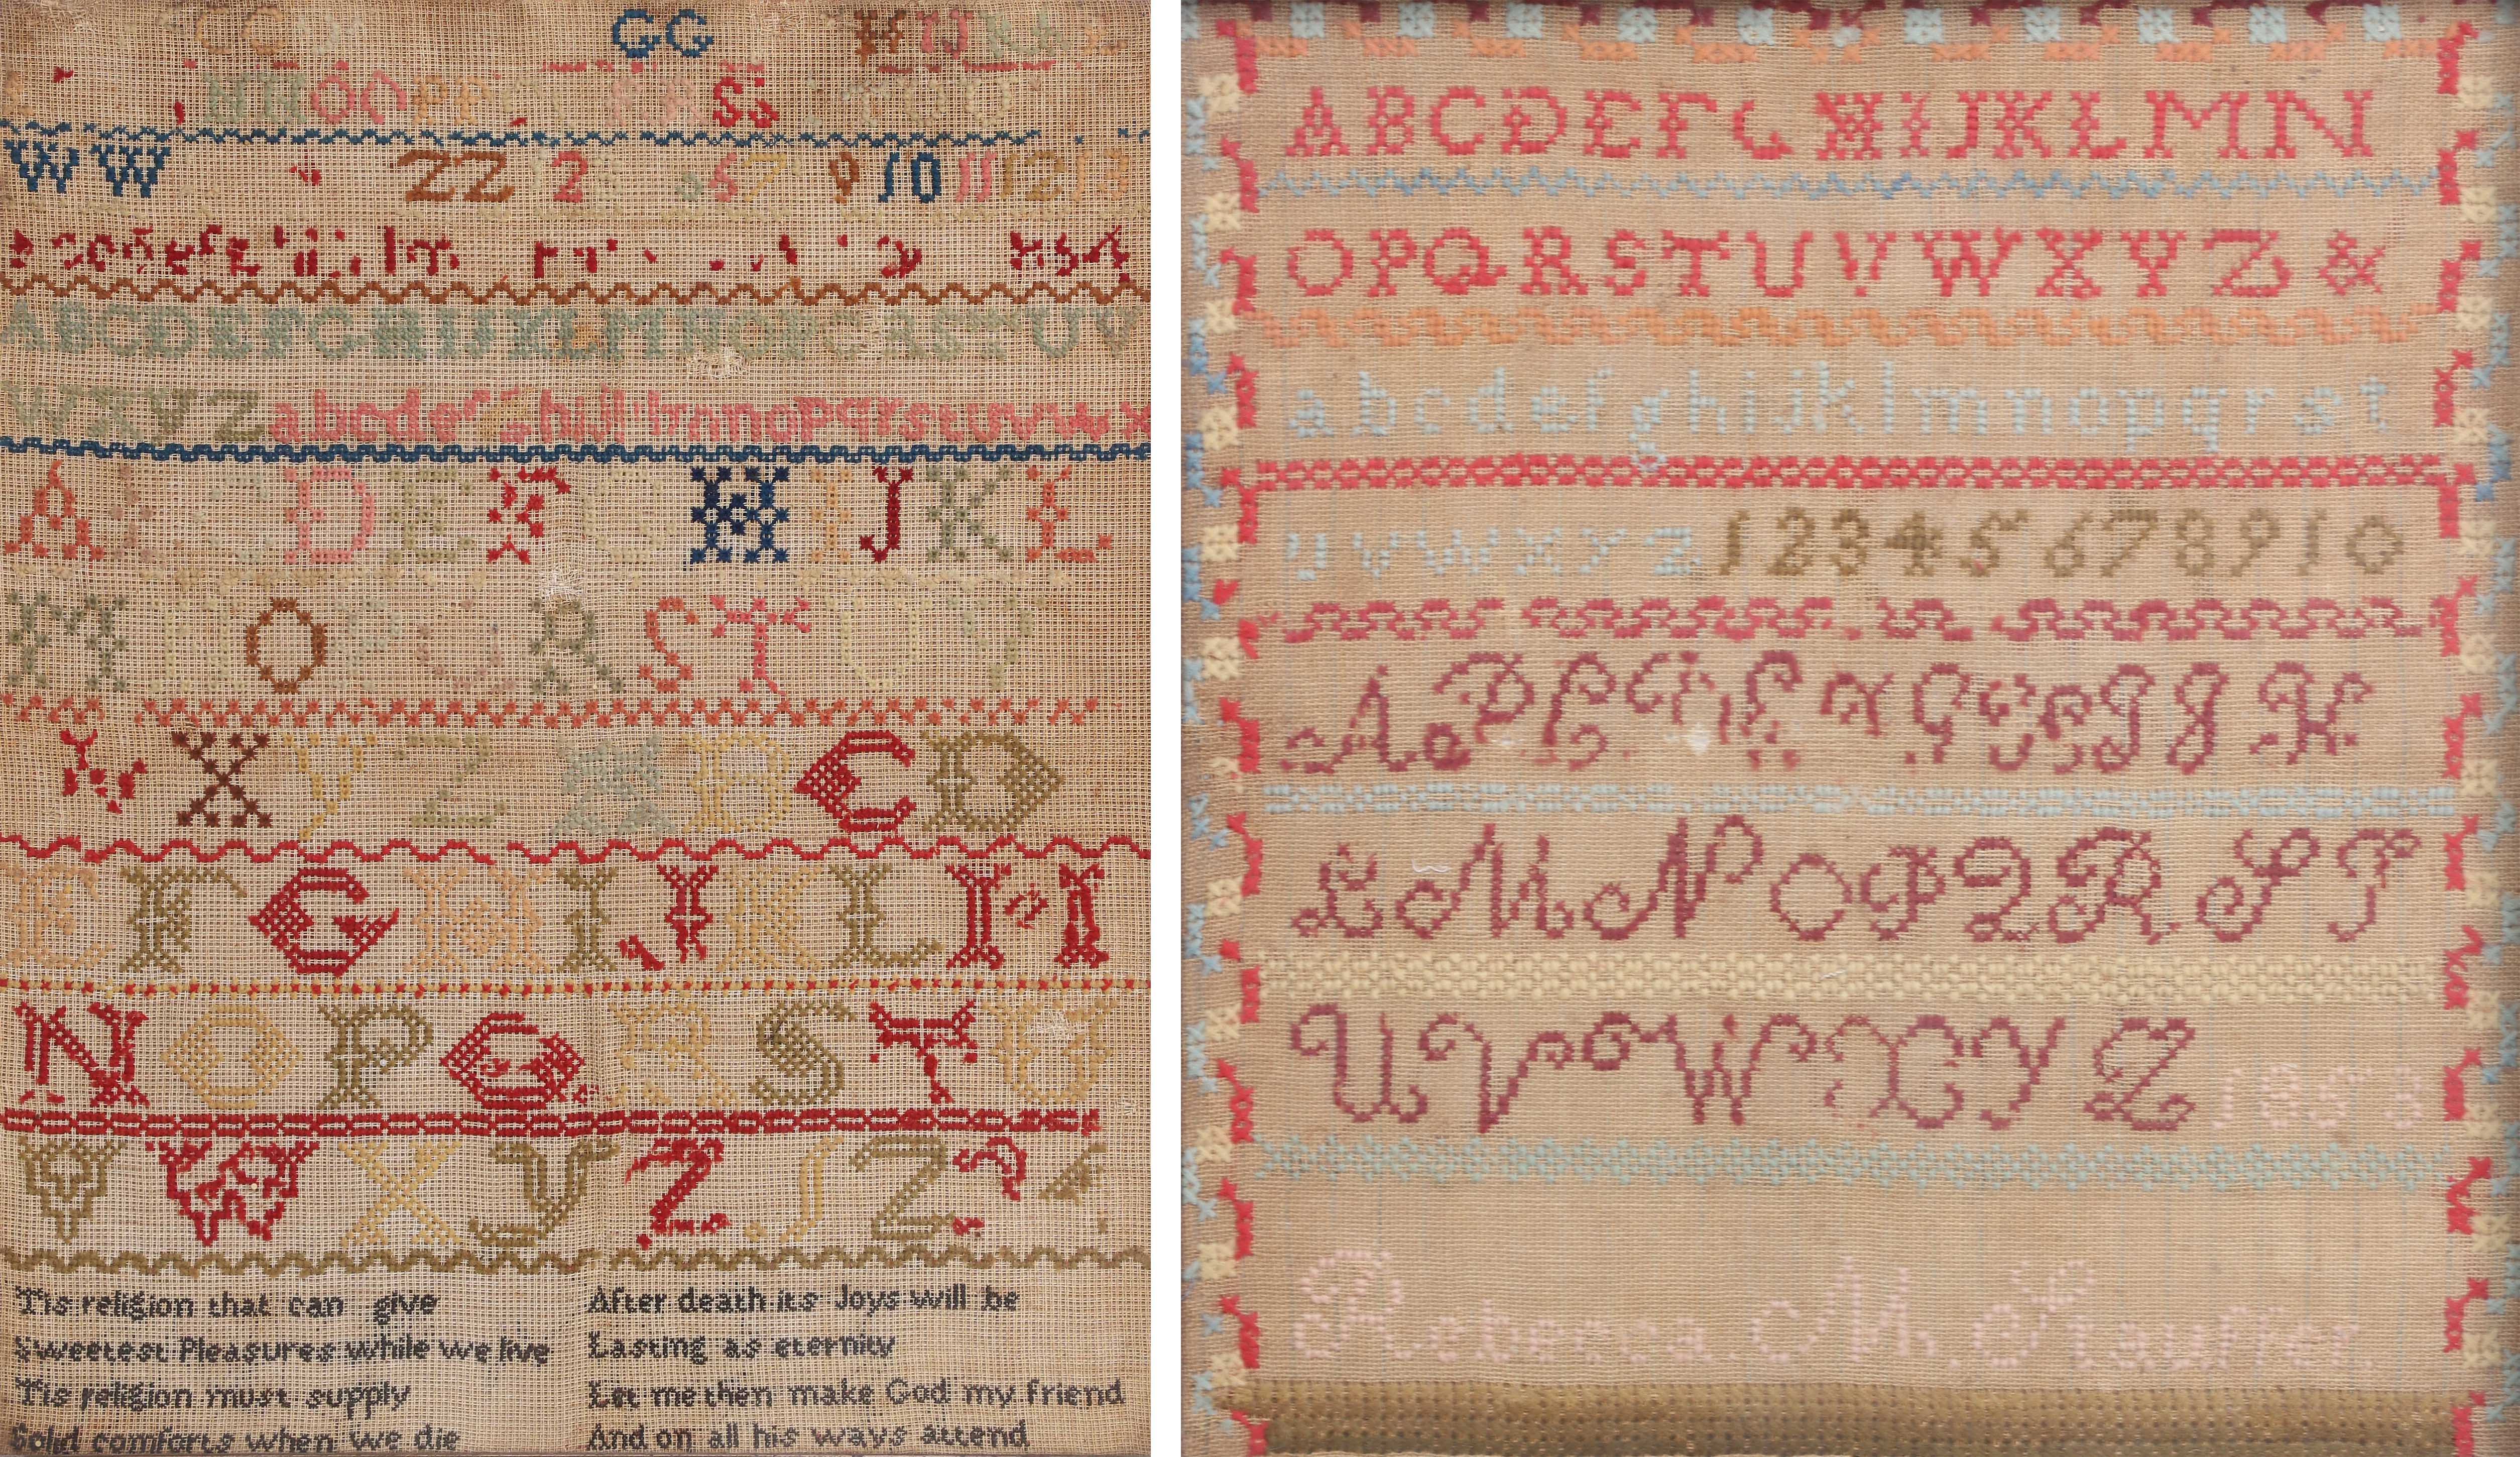 GG
SS
WW ZZ 12 67 9 10 11 12 13
ABCDEFGHIJKLMNOPQRSTUV
WXYZabcdefghijklmnopqrstuvwx
A DEFGHIJKL
MNOPQRSTUV
W X Y Z A B C D
E F G H I J K L M
N O P Q R S T U
V W X Y Z . 1 2 3 4
'Tis religion that can give
Sweetest Pleasures while we live
'Tis religion must supply
Solid comforts when we die
After death its Joys will be
Lasting as eternity
Let me then make God my friend
And on all his ways attend
ABCDEFGHIJKLMN
OPQRSTUVWXYZ&
abcdefghijklmnopqrst
uvwxyz12345678910
A B C D E F G H I J K
L M N O P Q R S T
U V W X Y Z
Rebecca. M.